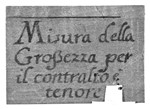 Misura della
Großezza per
il contralto e
tenore